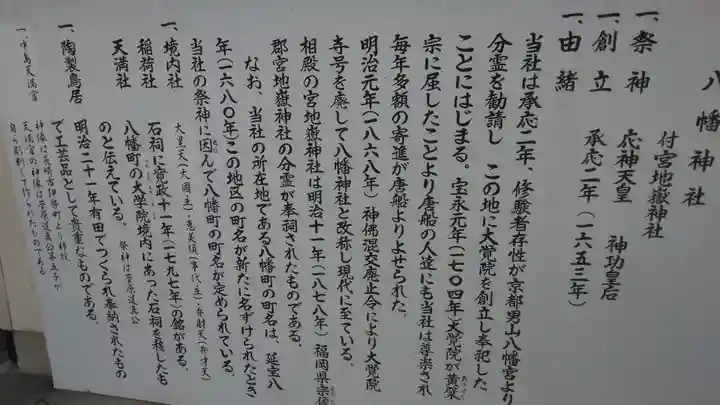 八幡神社
付 宮地嶽神社
一、祭神 応神天皇 神功皇后
一、創立 承応二年（一六五三年）
一、由緒
当社は承応二年、修験者存性が京都男山八幡宮より
分霊を勧請し この地に大覚院を創立し奉祀した
ことにはじまる。宝永元年（一七〇四年）大覚院が黄檗
宗に属したことより唐船の人達にも当社は尊崇され
毎年多額の寄進が唐船よりよせられた。
明治元年（一八六八年）神佛混交廃止令により大覚院
寺号を廃して八幡神社と改称し現代に至ている。
相殿の宮地嶽神社は明治十一年（一八七八年）福岡県宗像
郡宮地嶽神社の分霊が奉祠されたものである。
なお、当社の所在地である八幡町の町名は、延宝八
年（一六八〇年）この地区の町名が新たに名ずけられたとき
当社の祭神に因んで八幡町の町名が定められている。
一、境内社 大黒天（大国主）・恵美須（事代主）・弁財天（弁才天）
稲荷社 石祠に寛政十一年（一七九七年）の銘がある。
天満社 八幡町の大学院境内にあった石祠を移したも
のと伝えている。 祭神は菅原道真公
一、陶製鳥居 明治二十一年有田でつくられ奉納されたもの
で工芸品として貴重なものである。
天満宮の神像は菅原道真公第五子が
自ら彫刻して作られたものである